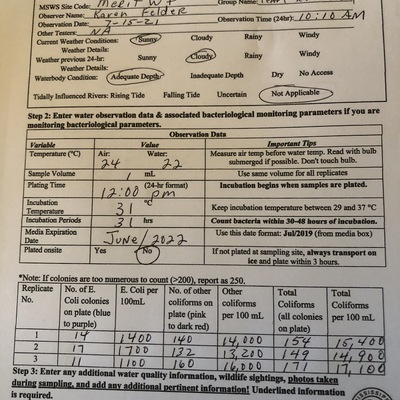 MSWS Site Code: Merit WP
Observer Name: Karen Felder
Group Name:
Observation Date: 7-15-21
Observation Time (24hr): 10:10 AM
Other Testers: NA
Current Weather Conditions: Sunny Cloudy Rainy Windy
Weather Details:
Weather previous 24-hr: Sunny Cloudy Rainy Windy
Weather Details:
Waterbody Condition: Adequate Depth Inadequate Depth Dry No Access
Tidally Influenced Rivers: Rising Tide Falling Tide Uncertain Not Applicable
Step 2: Enter water observation data & associated bacteriological monitoring parameters if you are
monitoring bacteriological parameters.
Observation Data
Variable Value Important Tips
Temperature (°C) Air: 24 Water: 22 Measure air temp before water temp. Read with bulb
submerged if possible. Don't touch bulb.
Sample Volume 1 mL Use same volume for all replicates
Plating Time 12:00 pm (24-hr format) Incubation begins when samples are plated.
Incubation
Temperature 31 °C Keep incubation temperature between 29 and 37 °C
Incubation Periods 31 hrs Count bacteria within 30-48 hours of incubation.
Media Expiration
Date June/2022 Use this date format: Jul/2019 (from media box)
Plated onsite Yes No If not plated at sampling site, always transport on
ice and plate within 3 hours.
*Note: If colonies are too numerous to count (>200), report as 250.
Replicate No. No. of E. Coli colonies on plate (blue to purple) E. Coli per 100mL No. of other coliforms on plate (pink to dark red) Other coliforms per 100 mL Total Coliforms (all colonies on plate) Total Coliforms per 100 mL
1 14 1400 140 14,000 154 15,400
2 17 1700 132 13,200 149 14,900
3 11 1100 160 16,000 171 17,100
Step 3: Enter any additional water quality information, wildlife sightings, photos taken
during sampling, and add any additional pertinent information! Underlined information
is required.